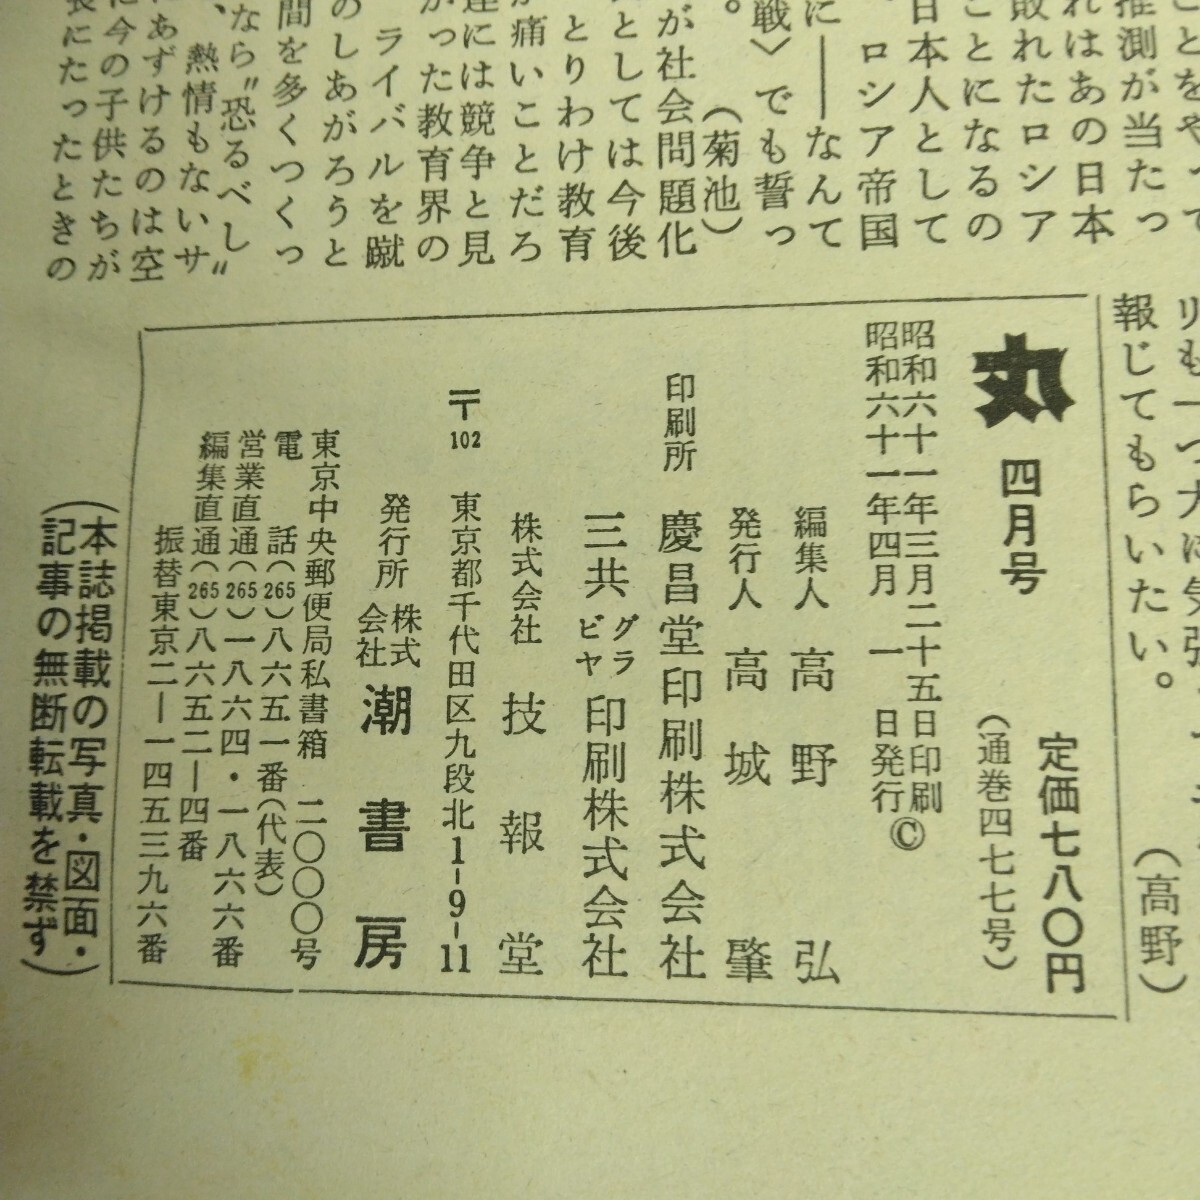 ことをやって
推測が当たっ
れはあの日本
敗れたロシア
ことになるの
日本人として
ロシア帝国
に――なんて
戦〉でも誓っ
。　（菊池）
が社会問題化
としては今後
とりわけ教育
が痛いことだろ
達には競争と見
かった教育界の
ライバルを蹴
のしあがろうと
間を多くつくっ
なら〝恐るべし〟
、熱情もないサ
にあずけるのは空
に今の子供たちが
長にたったときの
報じてもらいたい。（高野）
丸　四月号　定価七八〇円
（通巻四七七号）
昭和六十一年三月二十五日印刷
昭和六十一年四月一日発行©
編集人　高野　弘
発行人　高城　肇
印刷所　慶昌堂印刷株式会社
三共グラビヤ印刷株式会社
株式会社　技報堂
〒102　東京都千代田区九段北1-9-11
発行所　株式会社　潮書房
東京中央郵便局私書箱　二〇〇〇号
電話（265）八六五一番（代表）
営業直通（265）一八六四・一八六六番
編集直通（265）八六五二―四番
振替東京二―一四五三九六番
（本誌掲載の写真・図面・
記事の無断転載を禁ず）